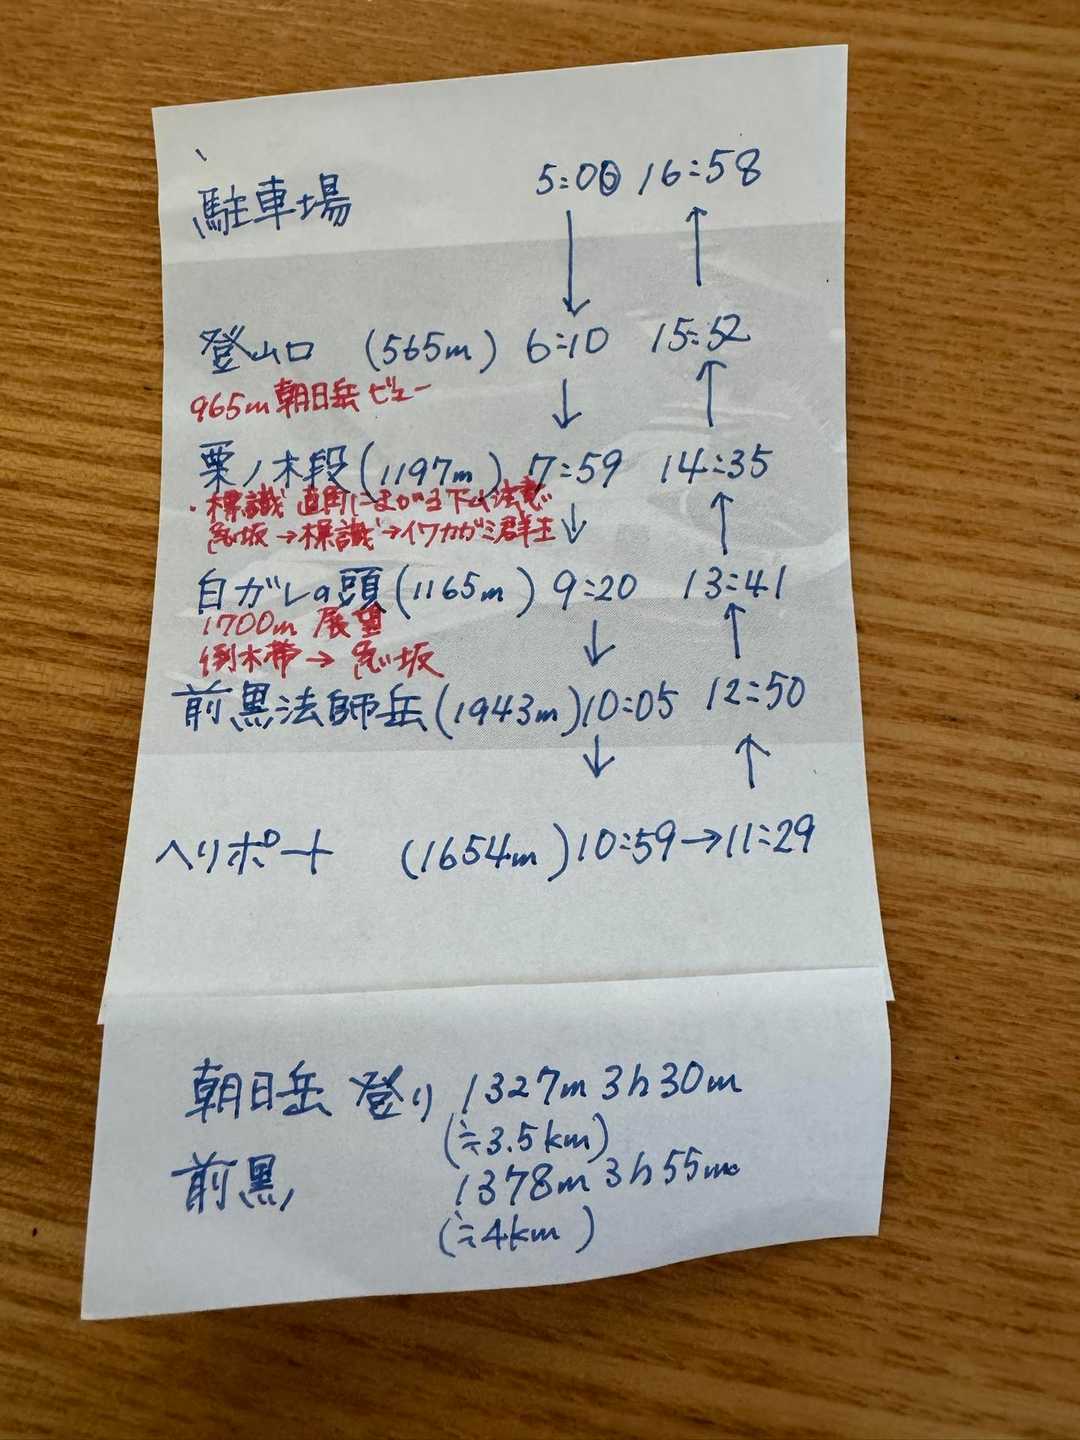 駐車場 5:00 16:58
登山口 (565m) 6:10 15:52
965m朝日岳ビュー
栗ノ木段(1197m) 7:59 14:35
・標識 直角にまがる下山注意
急坂→標識→イワカガミ群生
白ガレの頭(1165m) 9:20 13:41
1700m 展望
倒木帯→急坂
前黒法師岳(1943m)10:05 12:50
ヘリポート (1654m)10:59→11:29
朝日岳 登り 1327m 3h30m
(≒3.5km)
前黒 1378m 3h55m
(≒4km)